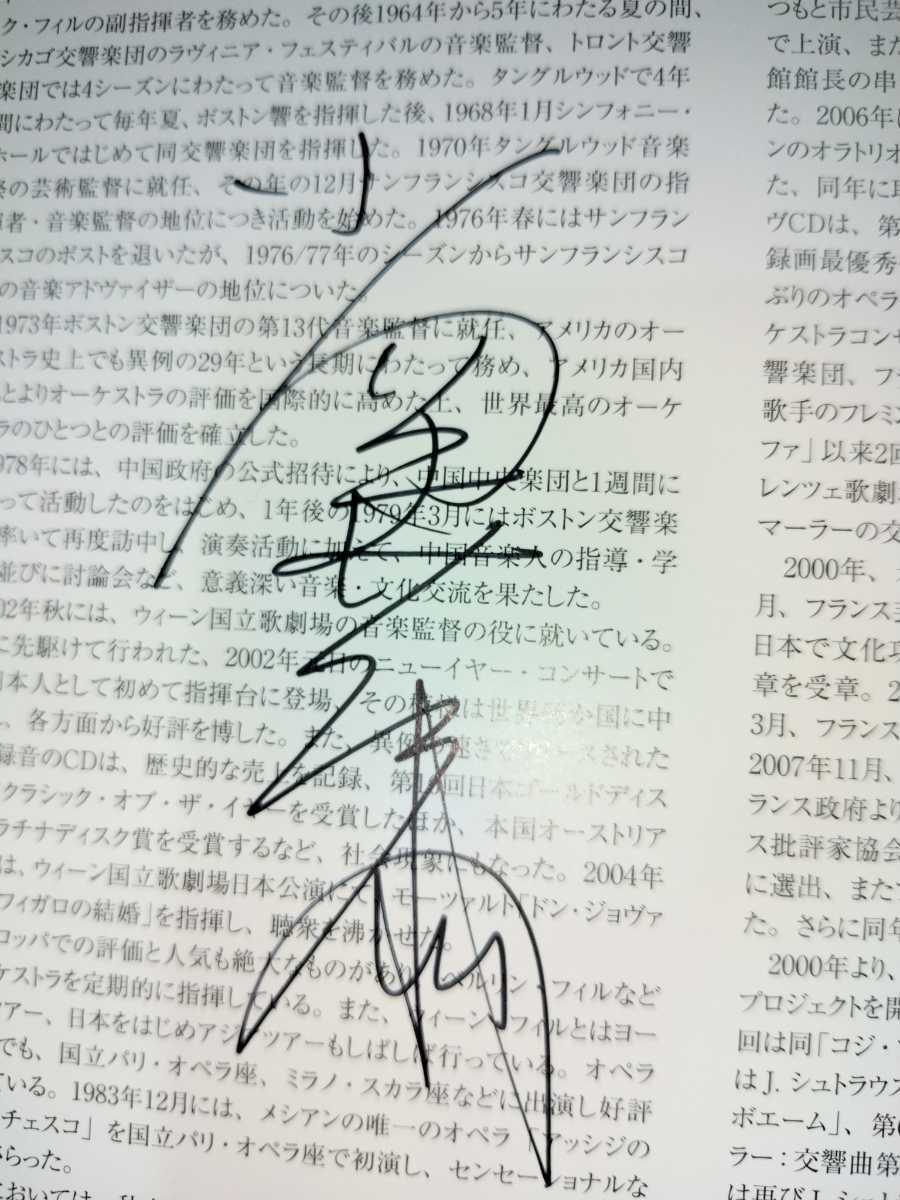 ク・フィルの副指揮者を務めた。その後1964年から5年にわたる夏の間、
シカゴ交響楽団のラヴィニア・フェスティバルの音楽監督、トロント交響
楽団では4シーズンにわたって音楽監督を務めた。タングルウッドで4年
間にわたって毎年夏、ボストン響を指揮した後、1968年1月シンフォニー・
ホールではじめて同交響楽団を指揮した。1970年タングルウッド音楽
祭の芸術監督に就任、その年の12月サンフランシスコ交響楽団の指
揮者・音楽監督の地位につき活動を始めた。1976年春にはサンフラン
スコのポストを退いたが、1976/77年のシーズンからサンフランシスコ
の音楽アドヴァイザーの地位についた。
1973年ボストン交響楽団の第13代音楽監督に就任、アメリカのオー
ストラ史上でも異例の29年という長期にわたって務め、アメリカ国内
とよりオーケストラの評価を国際的に高めた上、世界最高のオーケ
ラのひとつとの評価を確立した。
978年には、中国政府の公式招待により、中国中央楽団と1週間に
って活動したのをはじめ、1年後の1979年3月にはボストン交響楽
率いて再度訪中し、演奏活動に加えて、中国音楽人の指導・学
並びに討論会など、意義深い音楽・文化交流を果たした。
02年秋には、ウィーン国立歌劇場の音楽監督の役に就いている。
に先駆けて行われた、2002年元日のニューイヤー・コンサートで
日本人として初めて指揮台に登場、その模様は世界 か国に中
、各方面から好評を博した。また、異例の速さでリリースされた
録音のCDは、歴史的な売上を記録、第 回日本ゴールドディス
クラシック・オブ・ザ・イヤーを受賞したほか、本国オーストリア
ラチナディスク賞を受賞するなど、社会現象にもなった。2004年
は、ウィーン国立歌劇場日本公演にて、モーツァルト「ドン・ジョヴァ
フィガロの結婚」を指揮し、聴衆を沸かせた。
ロッパでの評価と人気も絶大なものがあり、ベルリン・フィルなど
ケストラを定期的に指揮している。また、ウィーン・フィルとはヨー
ツアー、日本をはじめアジアツアーもしばしば行っている。オペラ
でも、国立パリ・オペラ座、ミラノ・スカラ座などに出演し好評
ている。1983年12月には、メシアンの唯一のオペラ「アッシジの
チェスコ」を国立パリ・オペラ座で初演し、センセーショナルな
がらった。
においては、
つもと市民芸
で上演、また
館館長の串
た。2006年に
ンのオラトリオ
た、同年に
ヴCDは、第
録画最優秀
ぶりのオペラ
ケストラコンサ
響楽団、フ
歌手のフレミン
ファ」以来2回
レンツェ歌劇
マーラーの交
2000年、
月、フランス
日本で文化功
章を受章。2
3月、フランス
2007年11月、
ランス政府より
ス批評家協会
に選出、また
た。さらに同年
2000年より、
プロジェクトを開
回は同「コジ・
はJ.シュトラウス
ボエーム」、第6
ラー:交響曲第
は再びJ.シュト